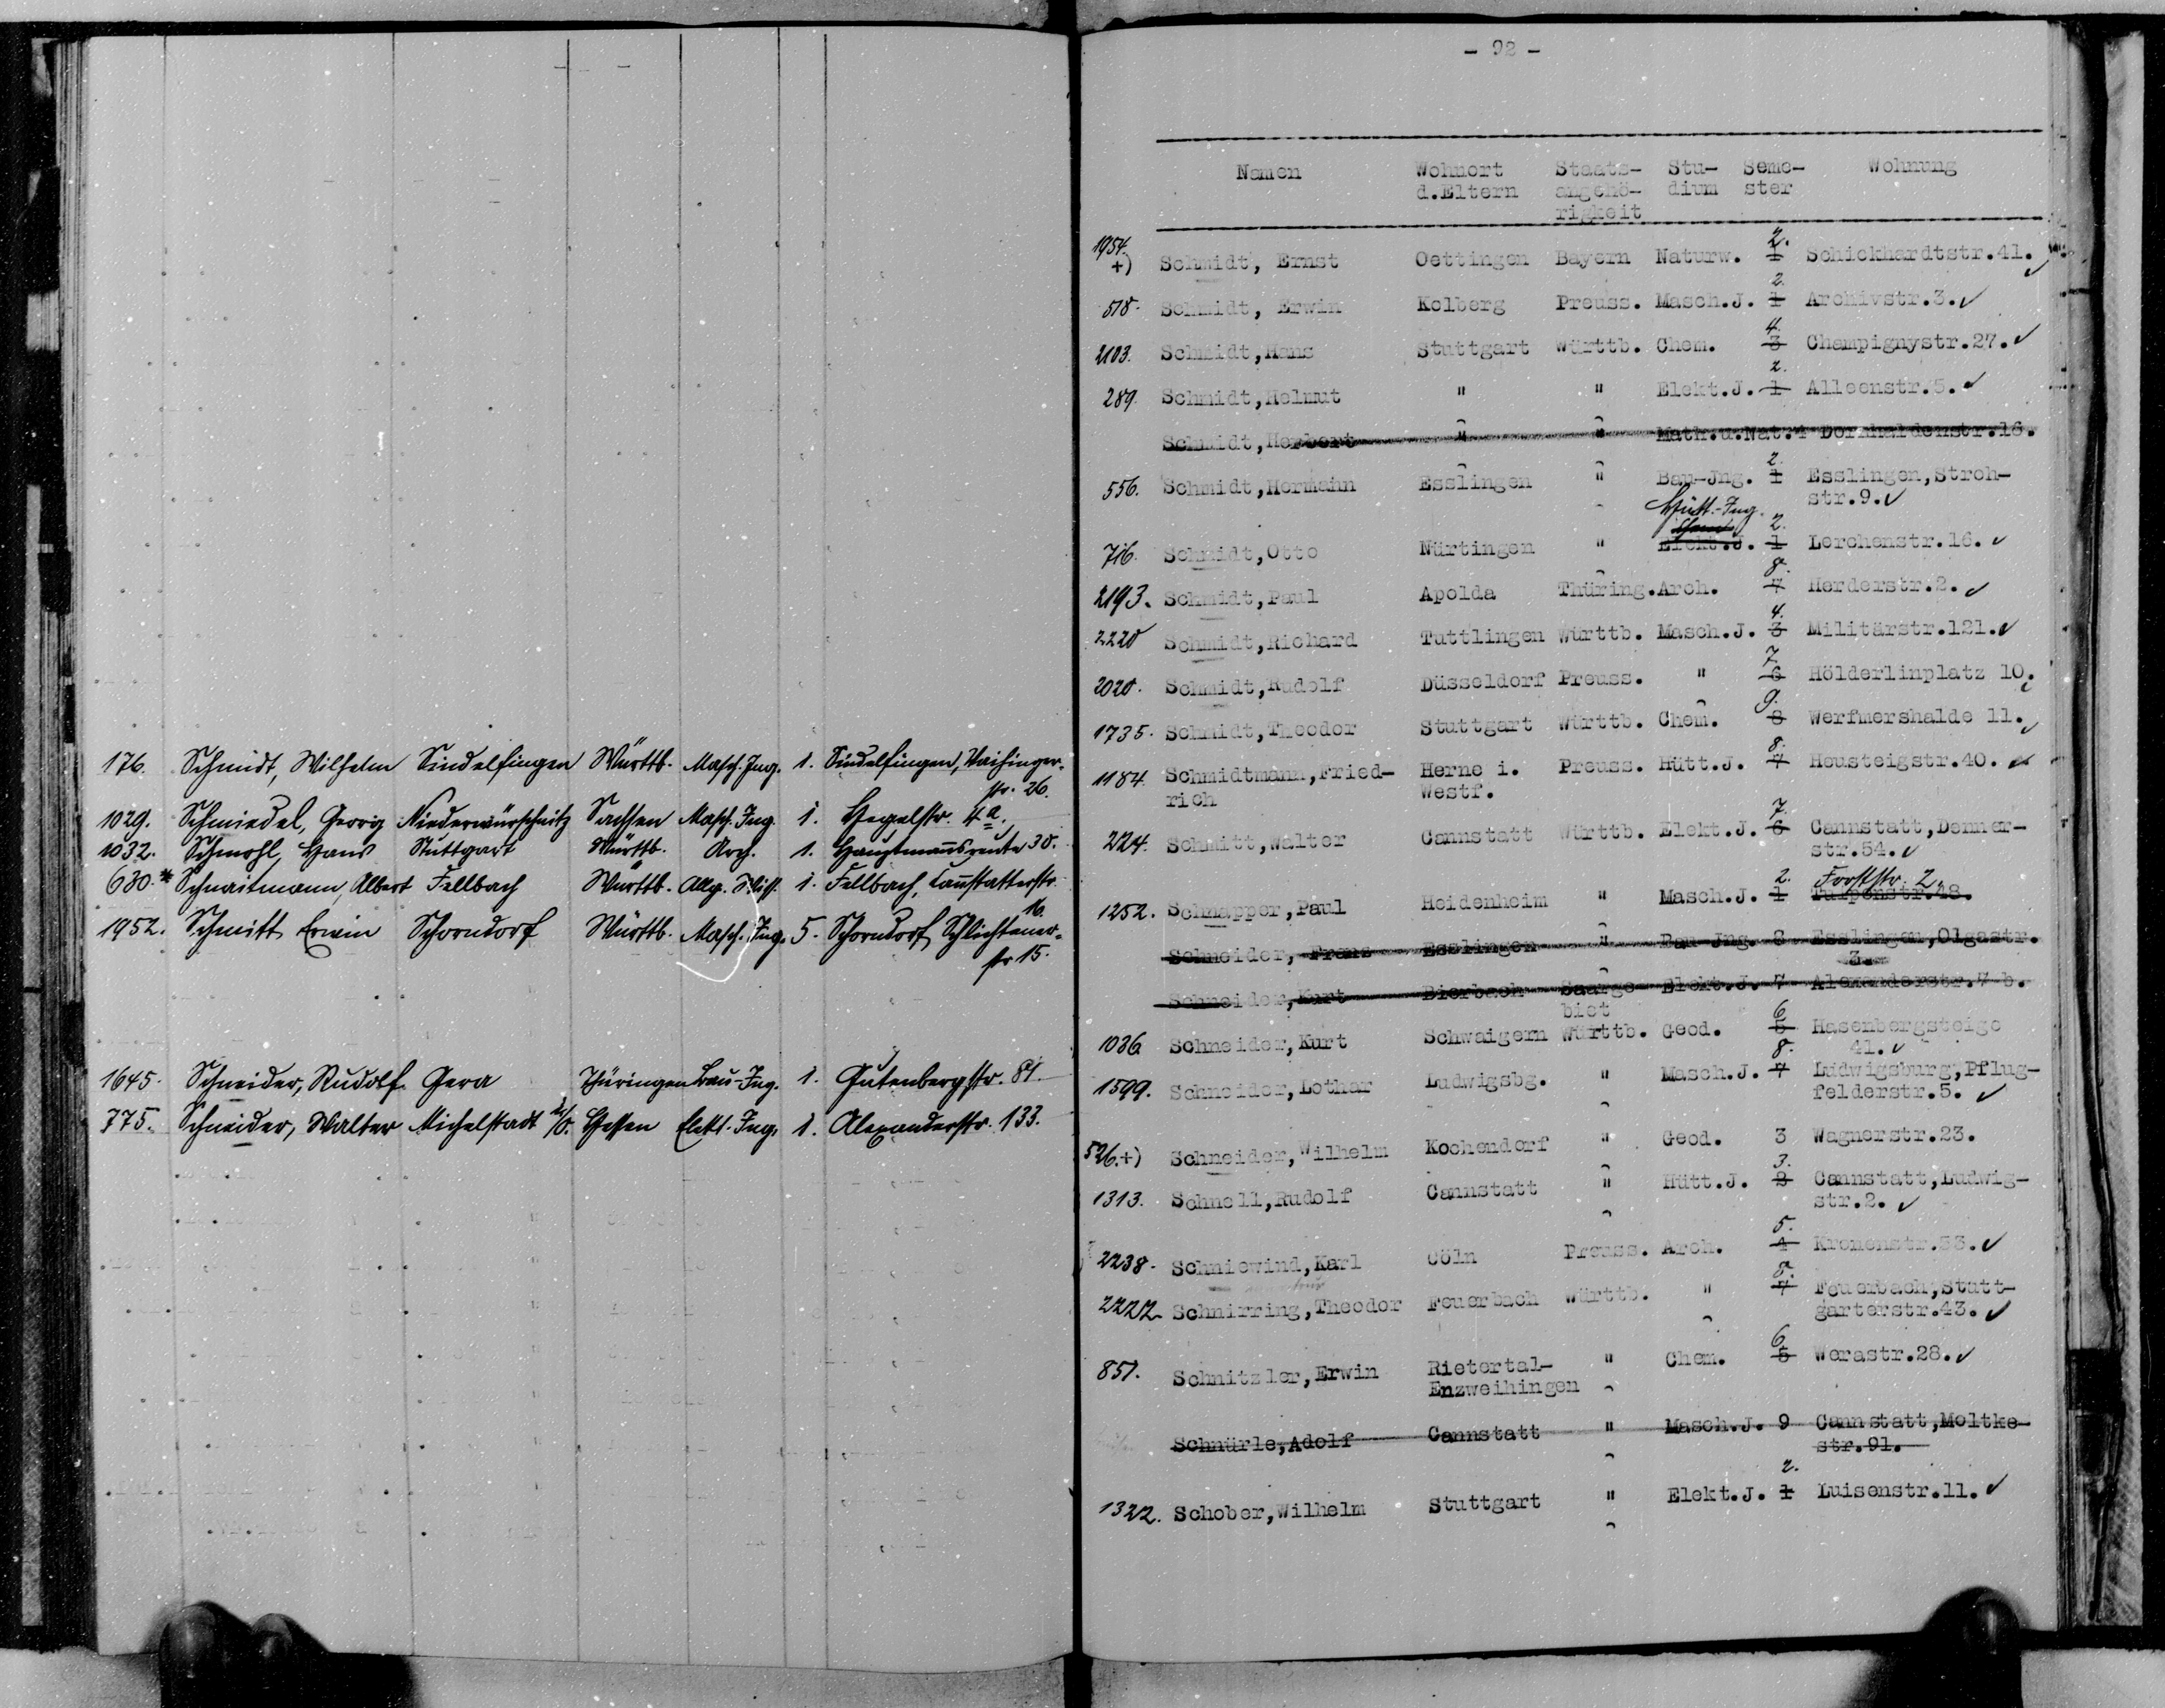 176. Schmidt, Wilhelm Sindelfingen Württb. Masch. Ing. 1. Sindelfingen, Vaihinger-
str. 26.
1029. Schmiedel, Georg Niederwürschnitz Sachsen Masch. Ing. 1. Hegelstr. 4a.
1032. Schmohl, Hans Stuttgart Württb. Arch. 1. Hauptmannsreute 38.
630.* Schnaitmann, Albert Fellbach Württb. Allg. Wiss. 1. Fellbach, Cannstatterstr.
16.
1952. Schmitt Erwin Schorndorf Württb. Masch. Ing. 5. Schorndorf, Schlichtener-
str 15.
1645. Schneider, Rudolf Gera Thüringen Bau-Ing. 1. Gutenbergstr. 81.
775. Schneider, Walter Michelstadt Hessen Elekt. Ing. 1. Alexanderstr. 133.
- 92 -
Namen Wohnort Staats- Stu- Seme- Wohnung
d.Eltern angehö- dium ster
rigkeit
1954. 2.
+) Schmidt, Ernst Oettingen Bayern Naturw. 1 Schickhardtstr.41.
2.
518. Schmidt, Erwin Kolberg Preuss. Masch.J. 1 Archivstr.3.
4.
2103. Schmidt,Hans Stuttgart Württb. Chem. 3 Champignystr.27.
2.
289. Schmidt,Helmut " " Elekt.J. 1 Alleenstr.5.
Schmidt,Herbert " " Math.u.Nat.4 Dornhaldenstr.16.
2.
556. Schmidt,Hermann Esslingen " Bau-Jng. 1 Esslingen,Stroh-
str.9.
Hütt.-Ing.
Chem. 2.
716. Schmidt,Otto Nürtingen " Elekt.J. 1 Lerchenstr.16.
8.
2193. Schmidt,Paul Apolda Thüring.Arch. 7 Herderstr.2.
4.
2220 Schmidt,Richard Tuttlingen Württb. Masch.J. 3 Militärstr.121.
7.
2020. Schmidt,Rudolf Düsseldorf Preuss. " 6 Hölderlinplatz 10.
9.
1735. Schmidt,Theodor Stuttgart Württb. Chem. 8 Werfmershalde 11.
8.
1184. Schmidtmann,Fried- Herne i. Preuss. Hütt.J. 7 Heusteigstr.40.
rich Westf.
7.
224. Schmitt,Walter Cannstatt Württb. Elekt.J. 6 Cannstatt,Denner-
str.54.
2. Forststr. 2.
1252. Schnapper,Paul Heidenheim " Masch.J. 1 Tulpenstr.48.
Schneider, Franz Esslingen " Bau-Jng. 8 Esslingen,Olgastr.
3.
Schneider,Kurt Bierbach Saarge- Elekt.J. 7 Alexanderstr.7 b.
biet
6
1036 Schneider,Kurt Schwaigern Württb. Geod. 5 Hasenbergsteige
41.
8.
1599. Schneider,Lothar Ludwigsbg. " Masch.J. 7 Ludwigsburg,Pflug-
felderstr.5.
526.+) Schneider,Wilhelm Kochendorf " Geod. 3 Wagnerstr.23.
3.
1313. Schnell,Rudolf Cannstatt " Hütt.J. 2 Cannstatt,Ludwig-
str.2.
5.
2238. Schniewind,Karl Cöln Preuss. Arch. 4 Kronenstr.53.
8.
2222. Schnirring,Theodor Feuerbach Württb. " 7 Feuerbach,Stutt-
garterstr.43.
6
851. Schnitzler,Erwin Rietertal- " Chem. 5 Werastr.28.
Enzweihingen
Schnürle,Adolf Cannstatt " Masch.J. 9 Cannstatt,Moltke-
str.91.
2.
1322. Schober,Wilhelm Stuttgart " Elekt.J. 1 Luisenstr.11.